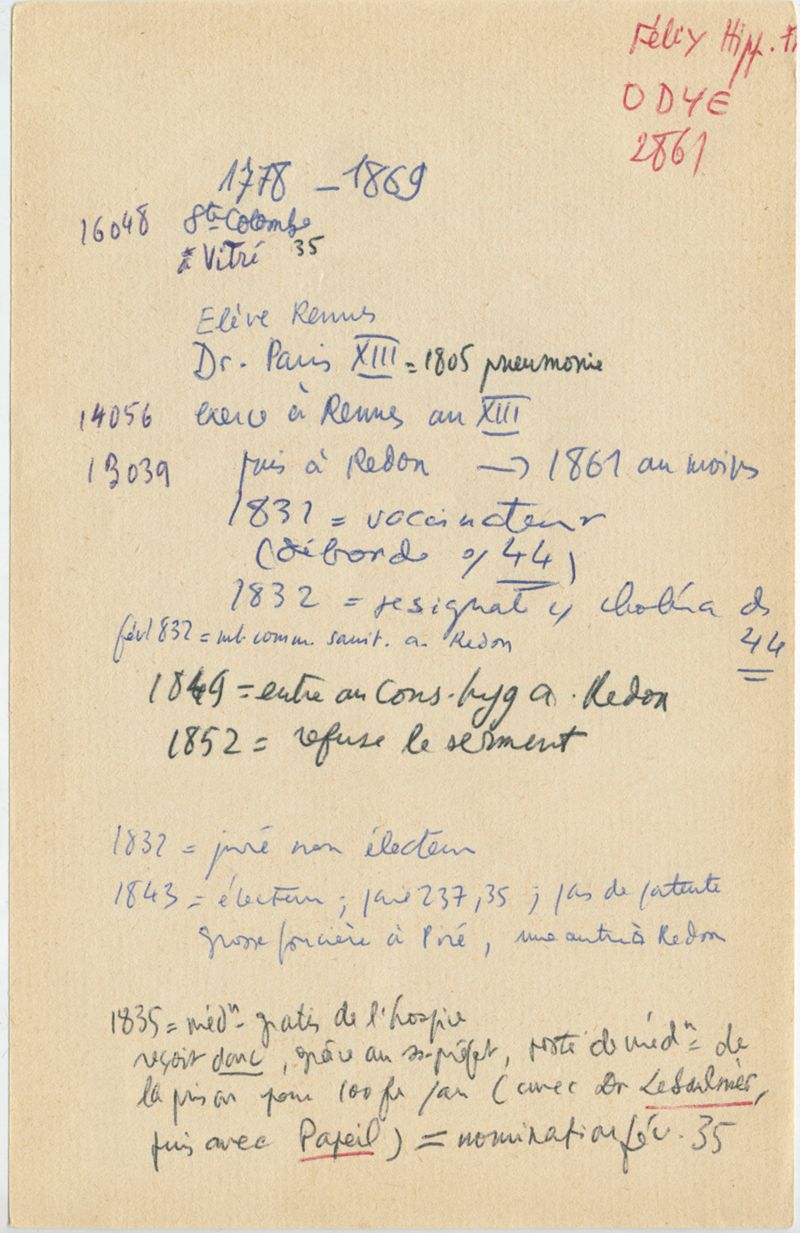 Félix Hipp. Fr
ODYE
2861
1778 – 1869
16048 Ste Colombe
Vitré 35
Elève Rennes
Dr. Paris XIII = 1805 pneumonie
14056 exerce à Rennes an XIII
13039 puis à Redon → 1861 au moins
1832 = vaccinateur
(déborde s/ 44)
1832 = se signal choléra ds
44
fév 1832 = mb comm. sanit. a. Redon
1849 = entre au Cons. hyg a. Redon
1852 = refuse le serment
1832 = juré non électeur
1843 = électeur ; paie 237,35 ; pas de patente
grosse foncière à Piré, une autre à Redon
1835 = médn gratis de l'hospice
reçoit donc, grâce au ss-préfet, poste de médn de
la prison pour 100 fr /an (avec Dr Lesaulnier,
puis avec Papeil) = nomination fév. 35